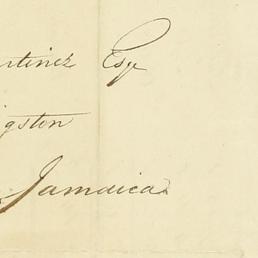 rtinez Esqr
gston
Jamaica